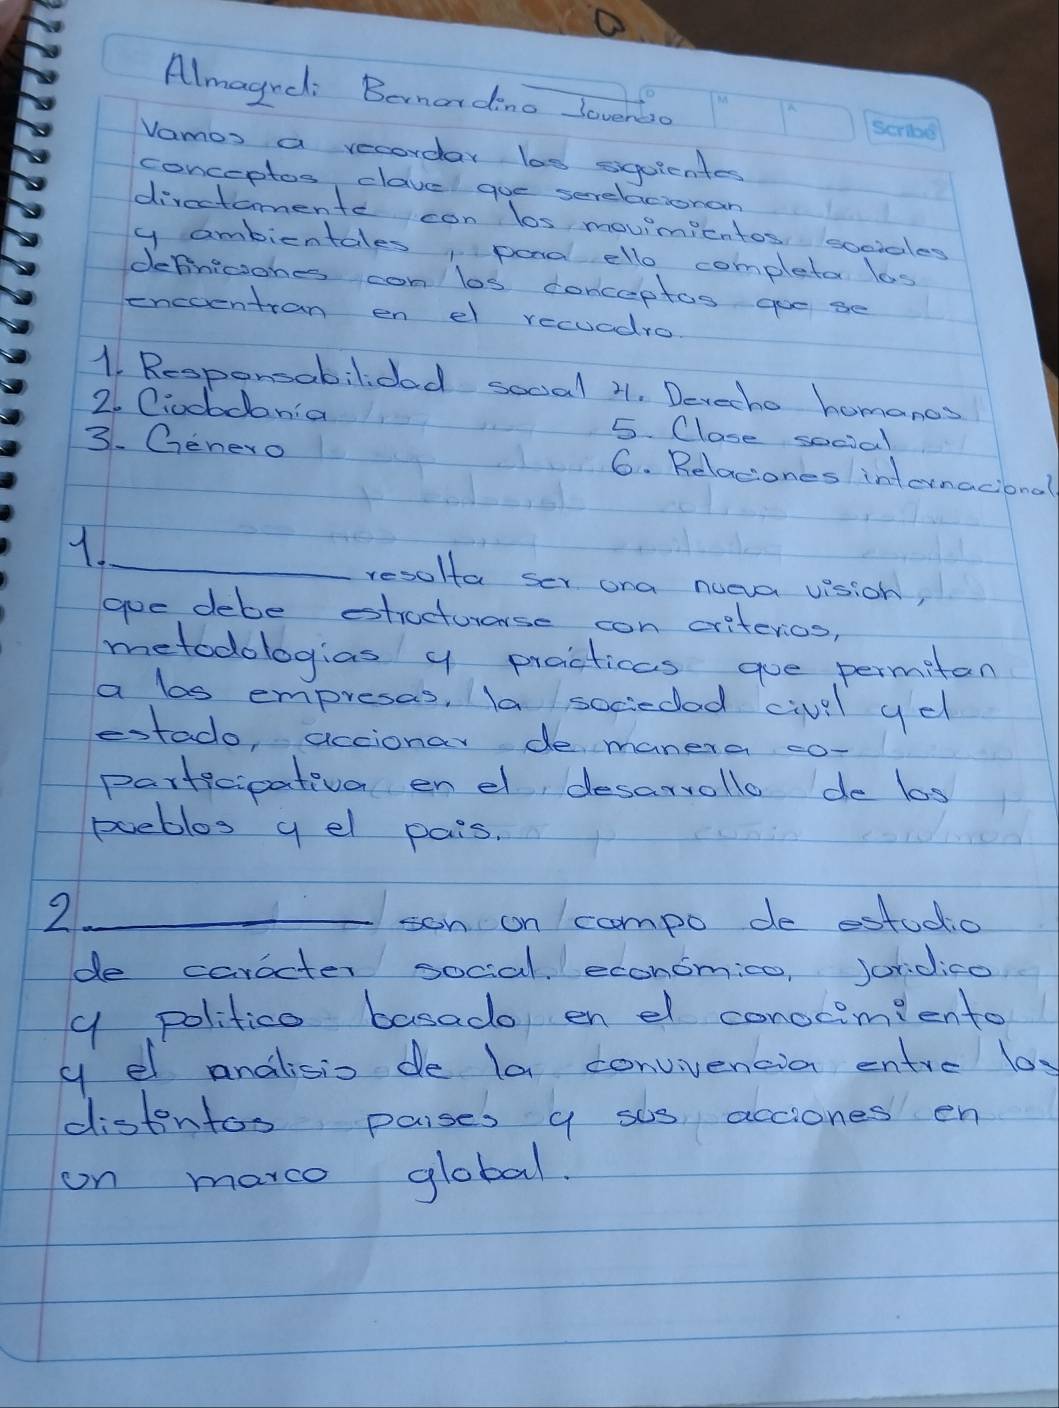 Almagrdi Bernardino Juvencio
D M A Scribe
Vamos a recordar los siguientes
conceptos, clave que serelacionan
directamente con los movimientos sociales
y ambientales, para ello completa las
definiciones con los conceptos que se
encuentran en el recuadro.
1. Responsabilidad social 4. Derecho humanos
2. Ciudadanía 5. Clase social
3. Género 6. Relaciones internacional
1. resulta ser una nueva vision,
que debe estructurarse con criterios,
metodologias y prácticas que permitan
a las empresas, la sociedad civil y el
estado, accionar de manera co-
participativa en el desarrollo de los
pueblos y el pais.
2. son un campo de estudio
de carácter social, económico, jurídico
y politico basado en el conocimiento
y el análisis de la convivencia entre los
distintos paises y sus acciones en
un marco global.